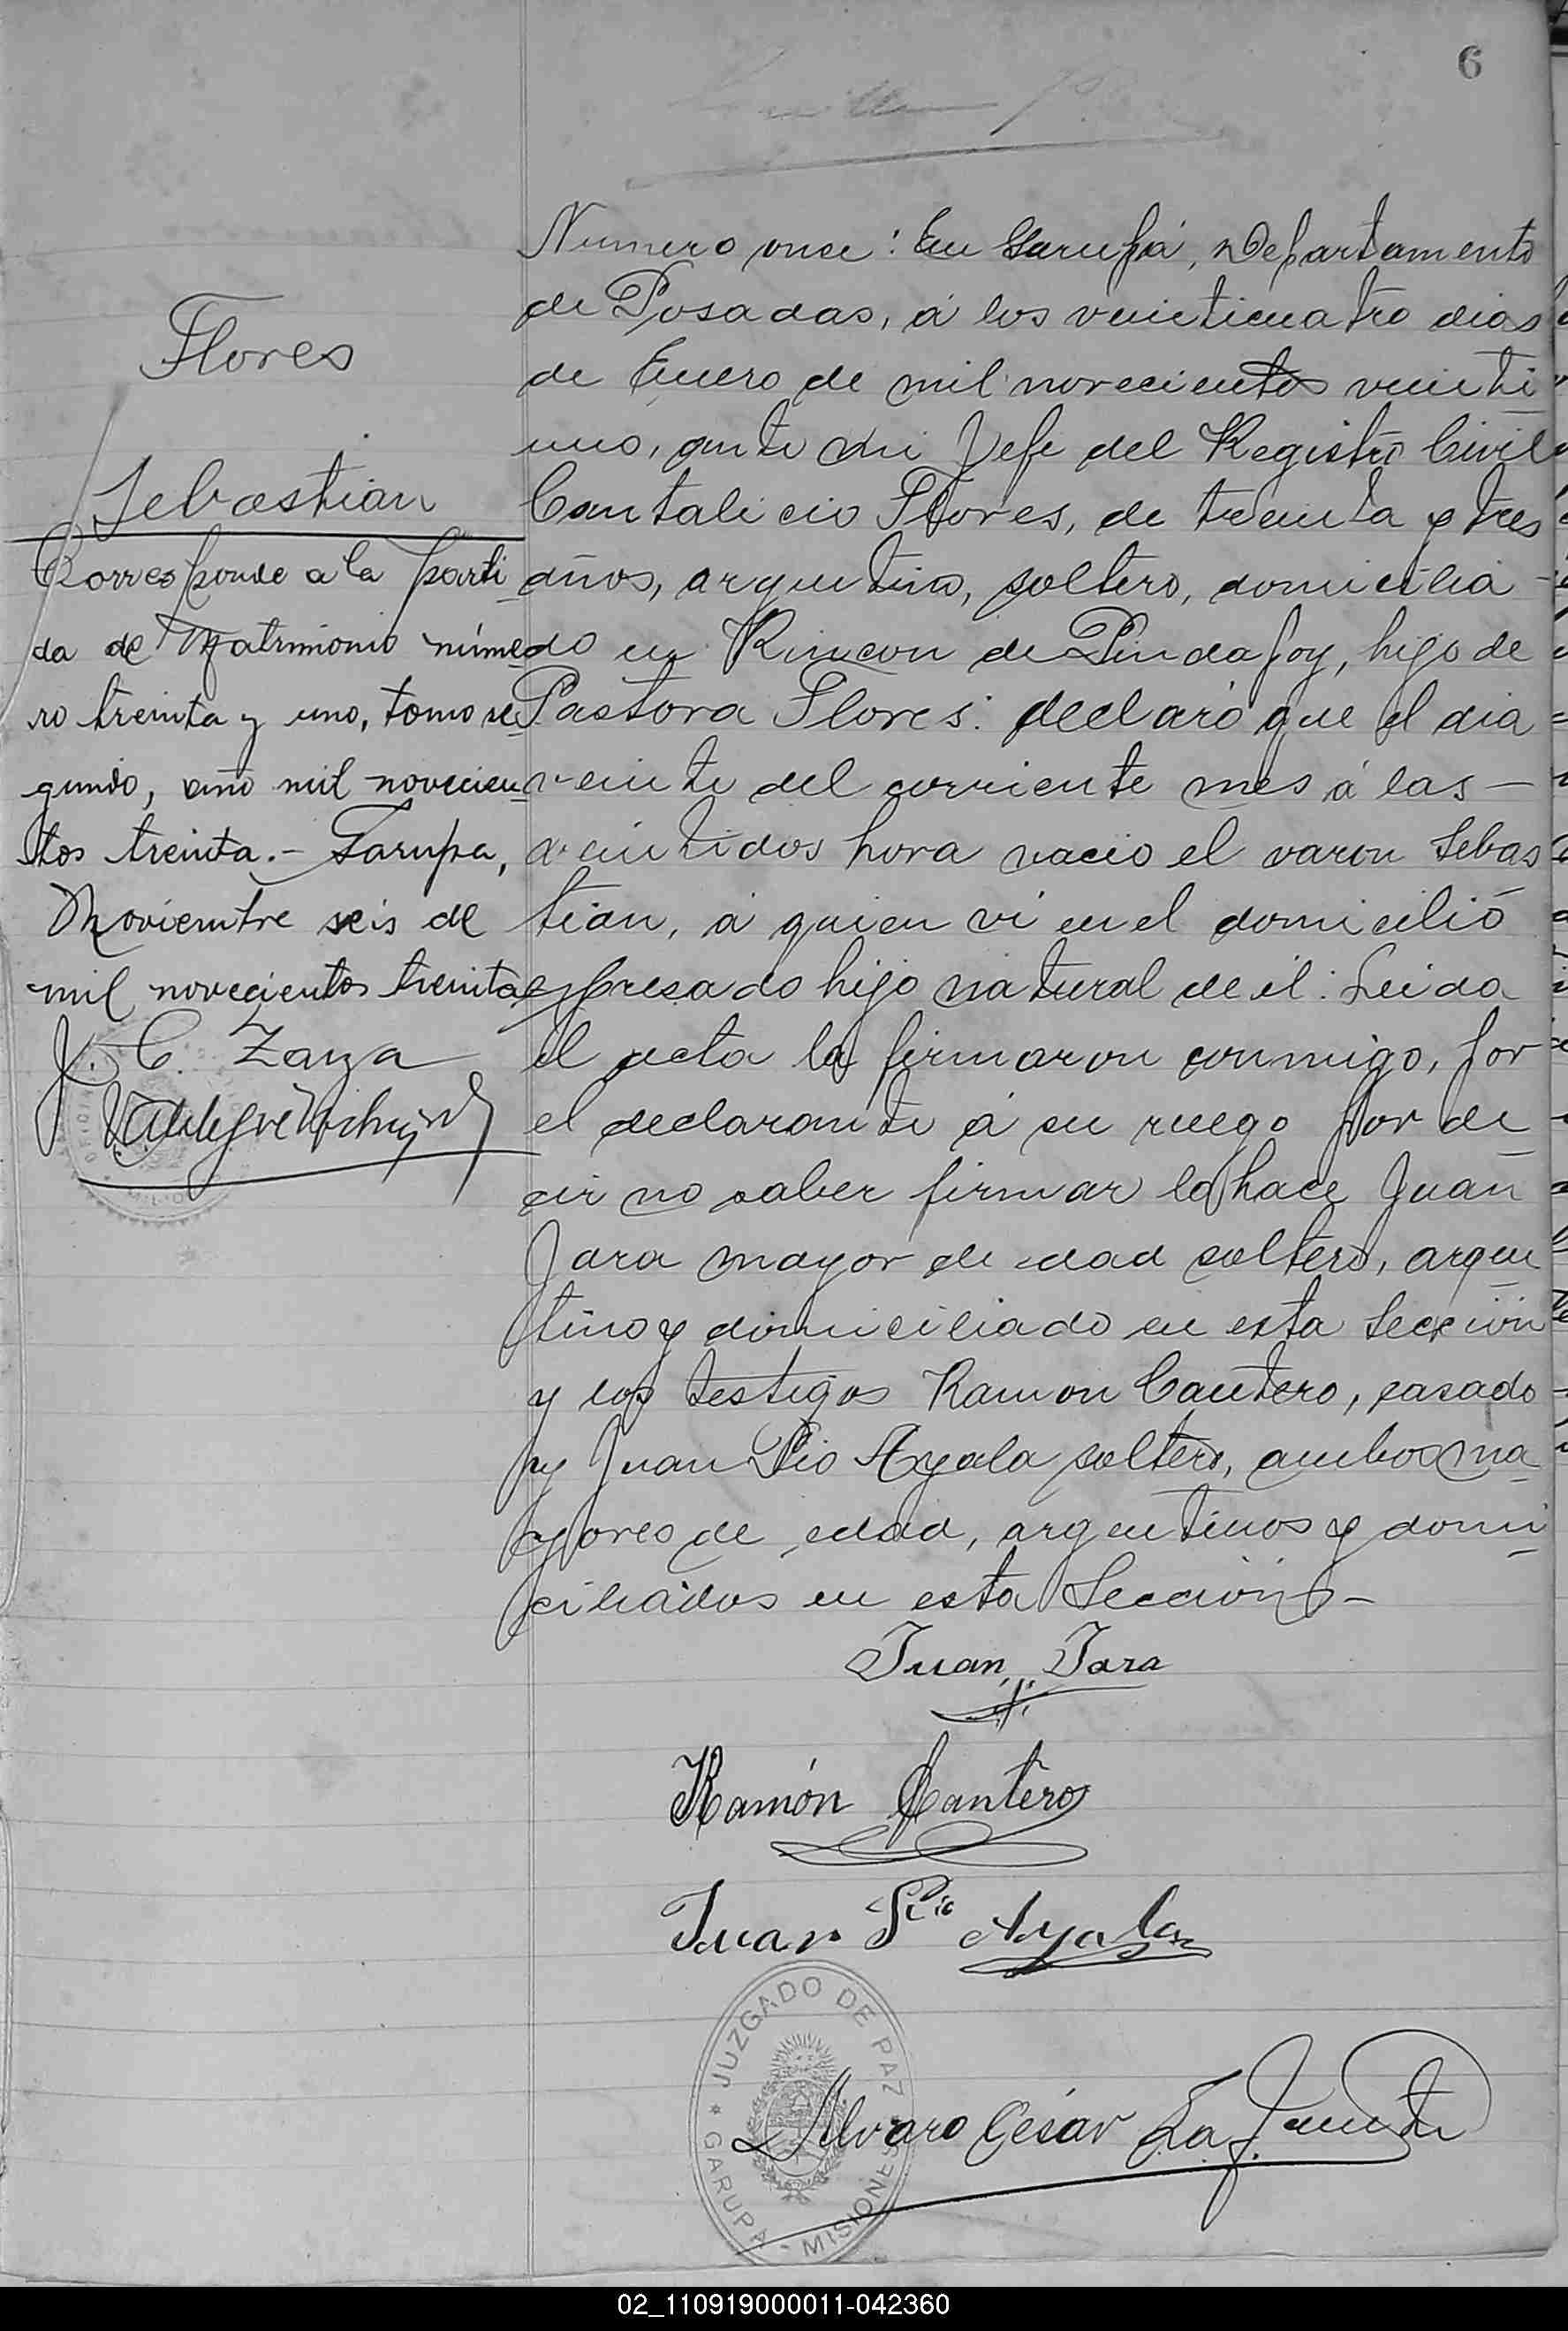 6
Flores
Sebastian
Corresponde a la parti
da de Matrimonio núme
ro treinta y uno, tomo se
gundo, año mil novecien
tos treinta.- Garupa,
Noviembre seis de
mil novecientos treinta
J. C. Zanza
Numero once: En Garupá, Departamento
de Posadas, á los veinticuatro dias
de Enero de mil novecientos veinti
uno, ante mi Jefe del Registro Civil
Cantalicio Flores, de treinta y tres
años, argentino, soltero, domicilia
do en Rincon de Pindapoy, hijo de
Pastora Flores: declaró que el dia
veinte del corriente mes á las —
veintidos hora nacio el varon Sebas
tian, á quien vi en el domicilió
espresado hijo natural de él: Leida
el acta la firmaron conmigo, por
el declarante á su ruego por de
cir no saber firmar lo hace Juan
Jara mayor de edad soltero, argen
tino y domiciliado en esta Seccion
y los testigos Ramon Cantero, casado
y Juan Pio Ayala soltero, ambos ma
yores de edad, argentinos y domi
ciliados en esta Sección-
Juan Jara
Ramón Cantero
Juan Pio Ayala
JUZGADO DE PAZ
GARUPA - MISIONES
Alvaro César
02_110919000011-042360